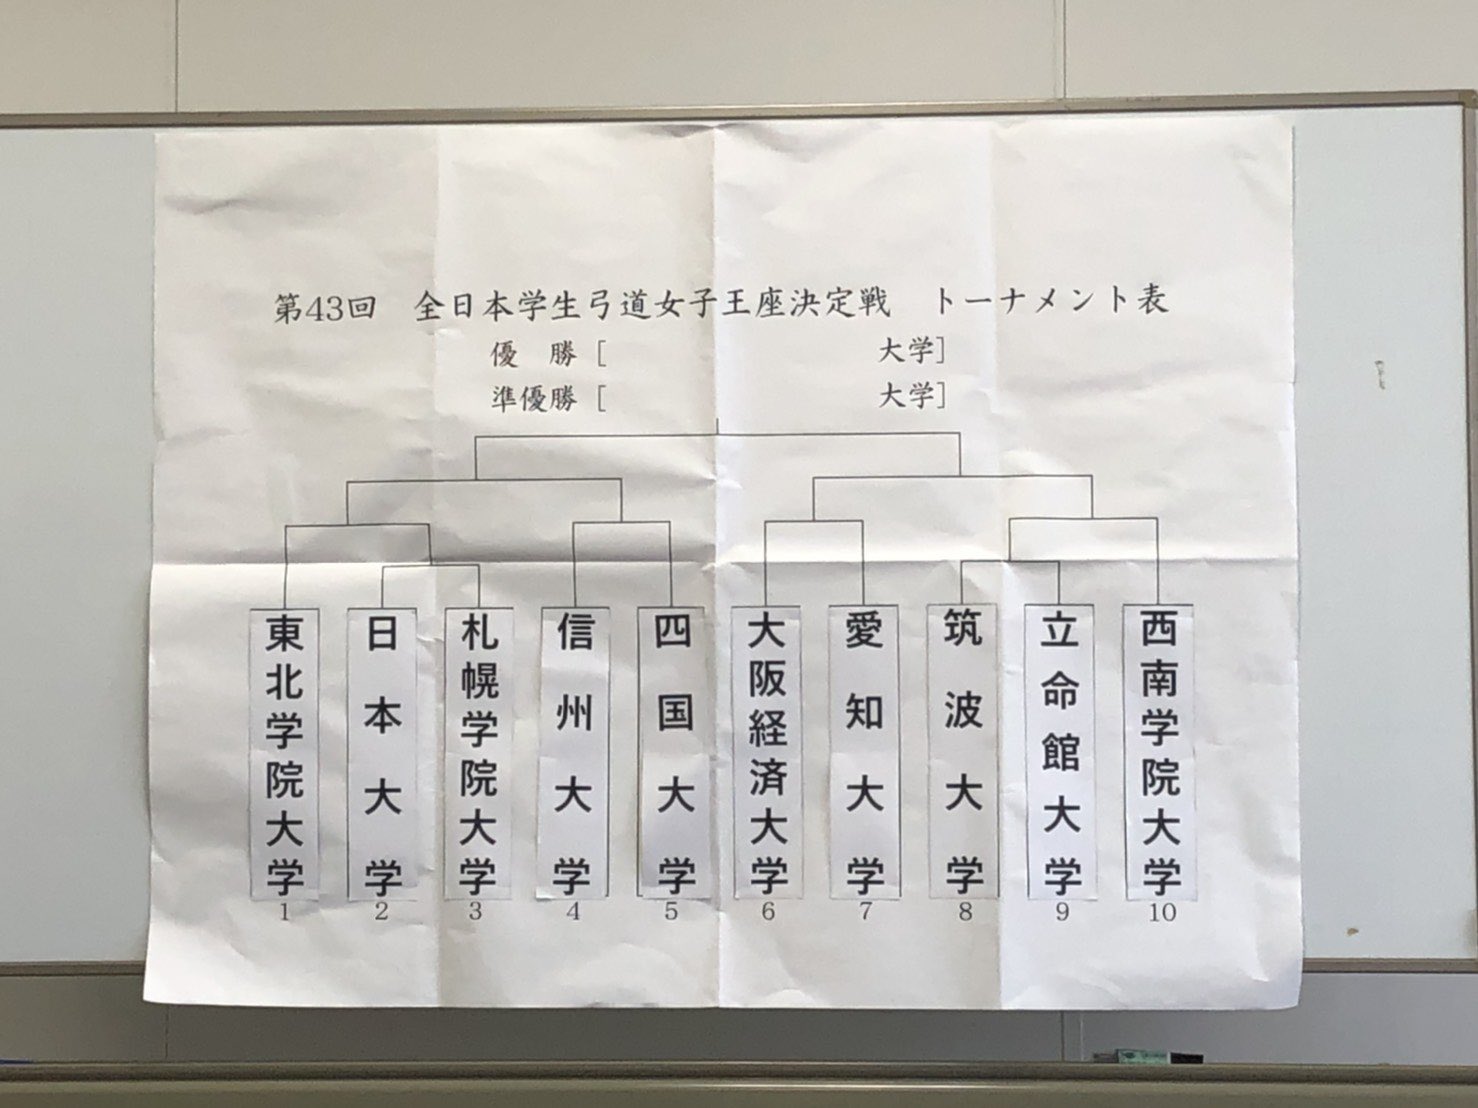 第43回　全日本学生弓道女子王座決定戦　トーナメント表
優　勝［　　　　　　　　　大学］
準優勝［　　　　　　　　　大学］
東北学院大学
1
日本大学
2
札幌学院大学
3
信州大学
4
四国大学
5
大阪経済大学
6
愛知大学
7
筑波大学
8
立命館大学
9
西南学院大学
10